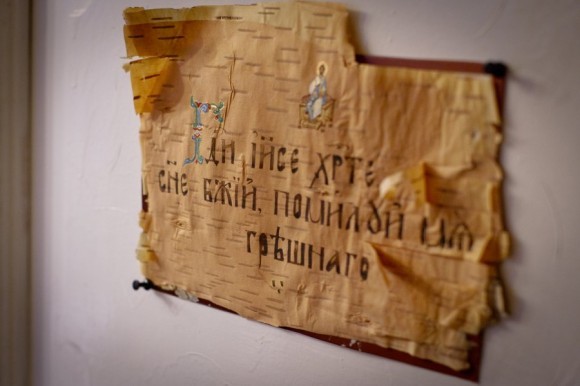 Гди Іи҃се Хр҃те
Сн҃е Бж҃їй, помилуй мѧ
грѣшнаго